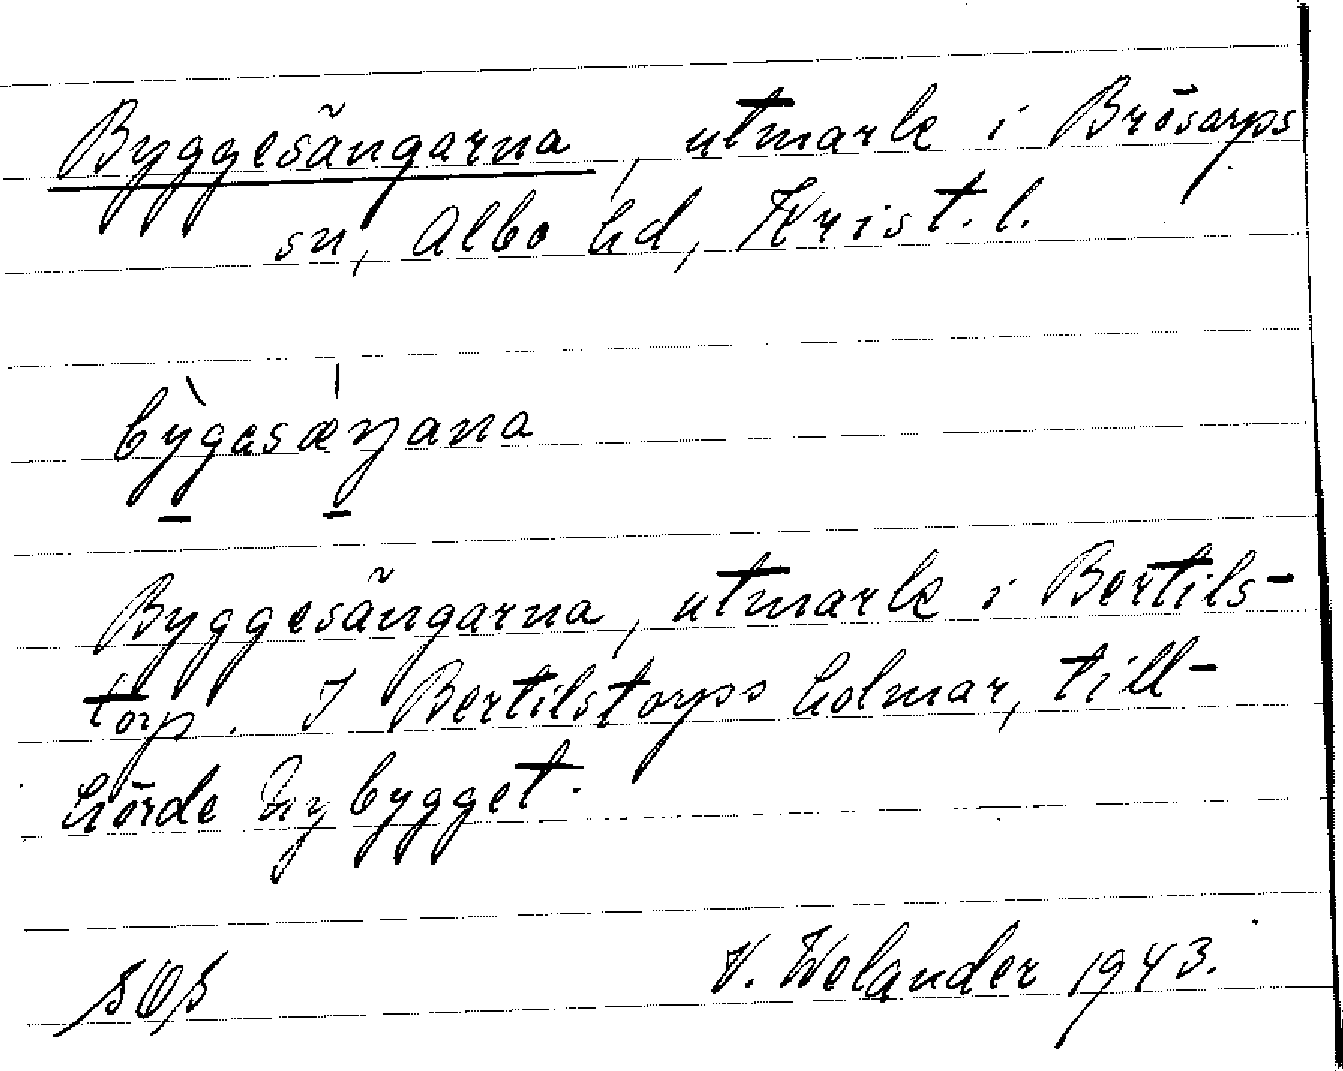 Byggesängarna, utmark i Brösarps
sn, Albo hd, Krist. l.
bỳgesæŋana
Byggesängarna, utmark i Bertils-
torp. I Bertilstorps holmar, till-
hörde Nybygget.
V. Welander 1943.